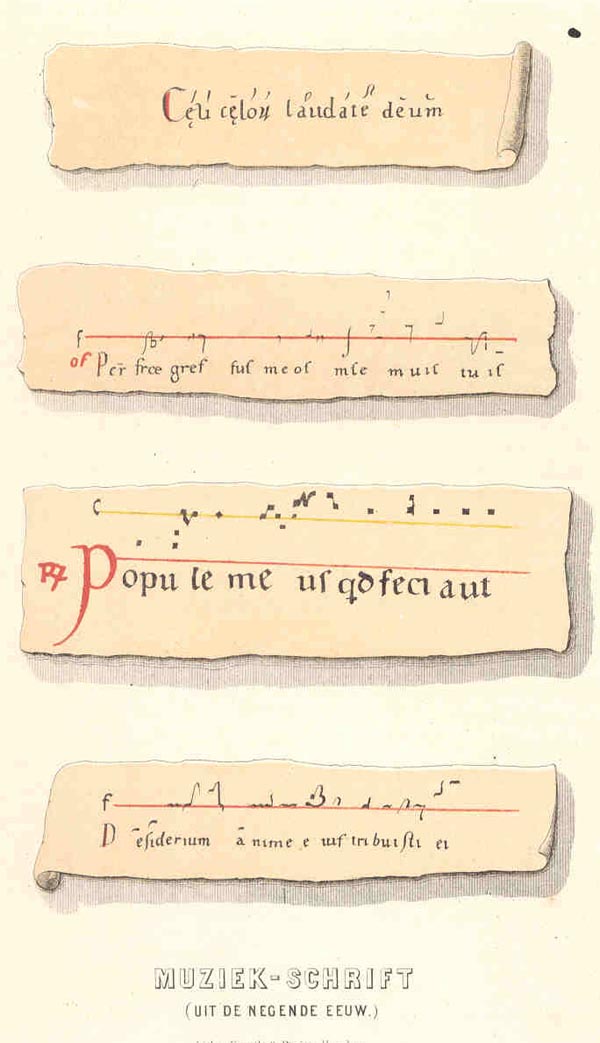 Cęli cęloꝝ laudate dēum
f
of Per̄ frœ greſ ſuſ meoſ mſe muiſ tuiſ
C
Popu le me uſ qđ feci aut
f
Deſiderium ānime e uiſ tribuiſti ei
MUZIEK-SCHRIFT
(UIT DE NEGENDE EEUW.)